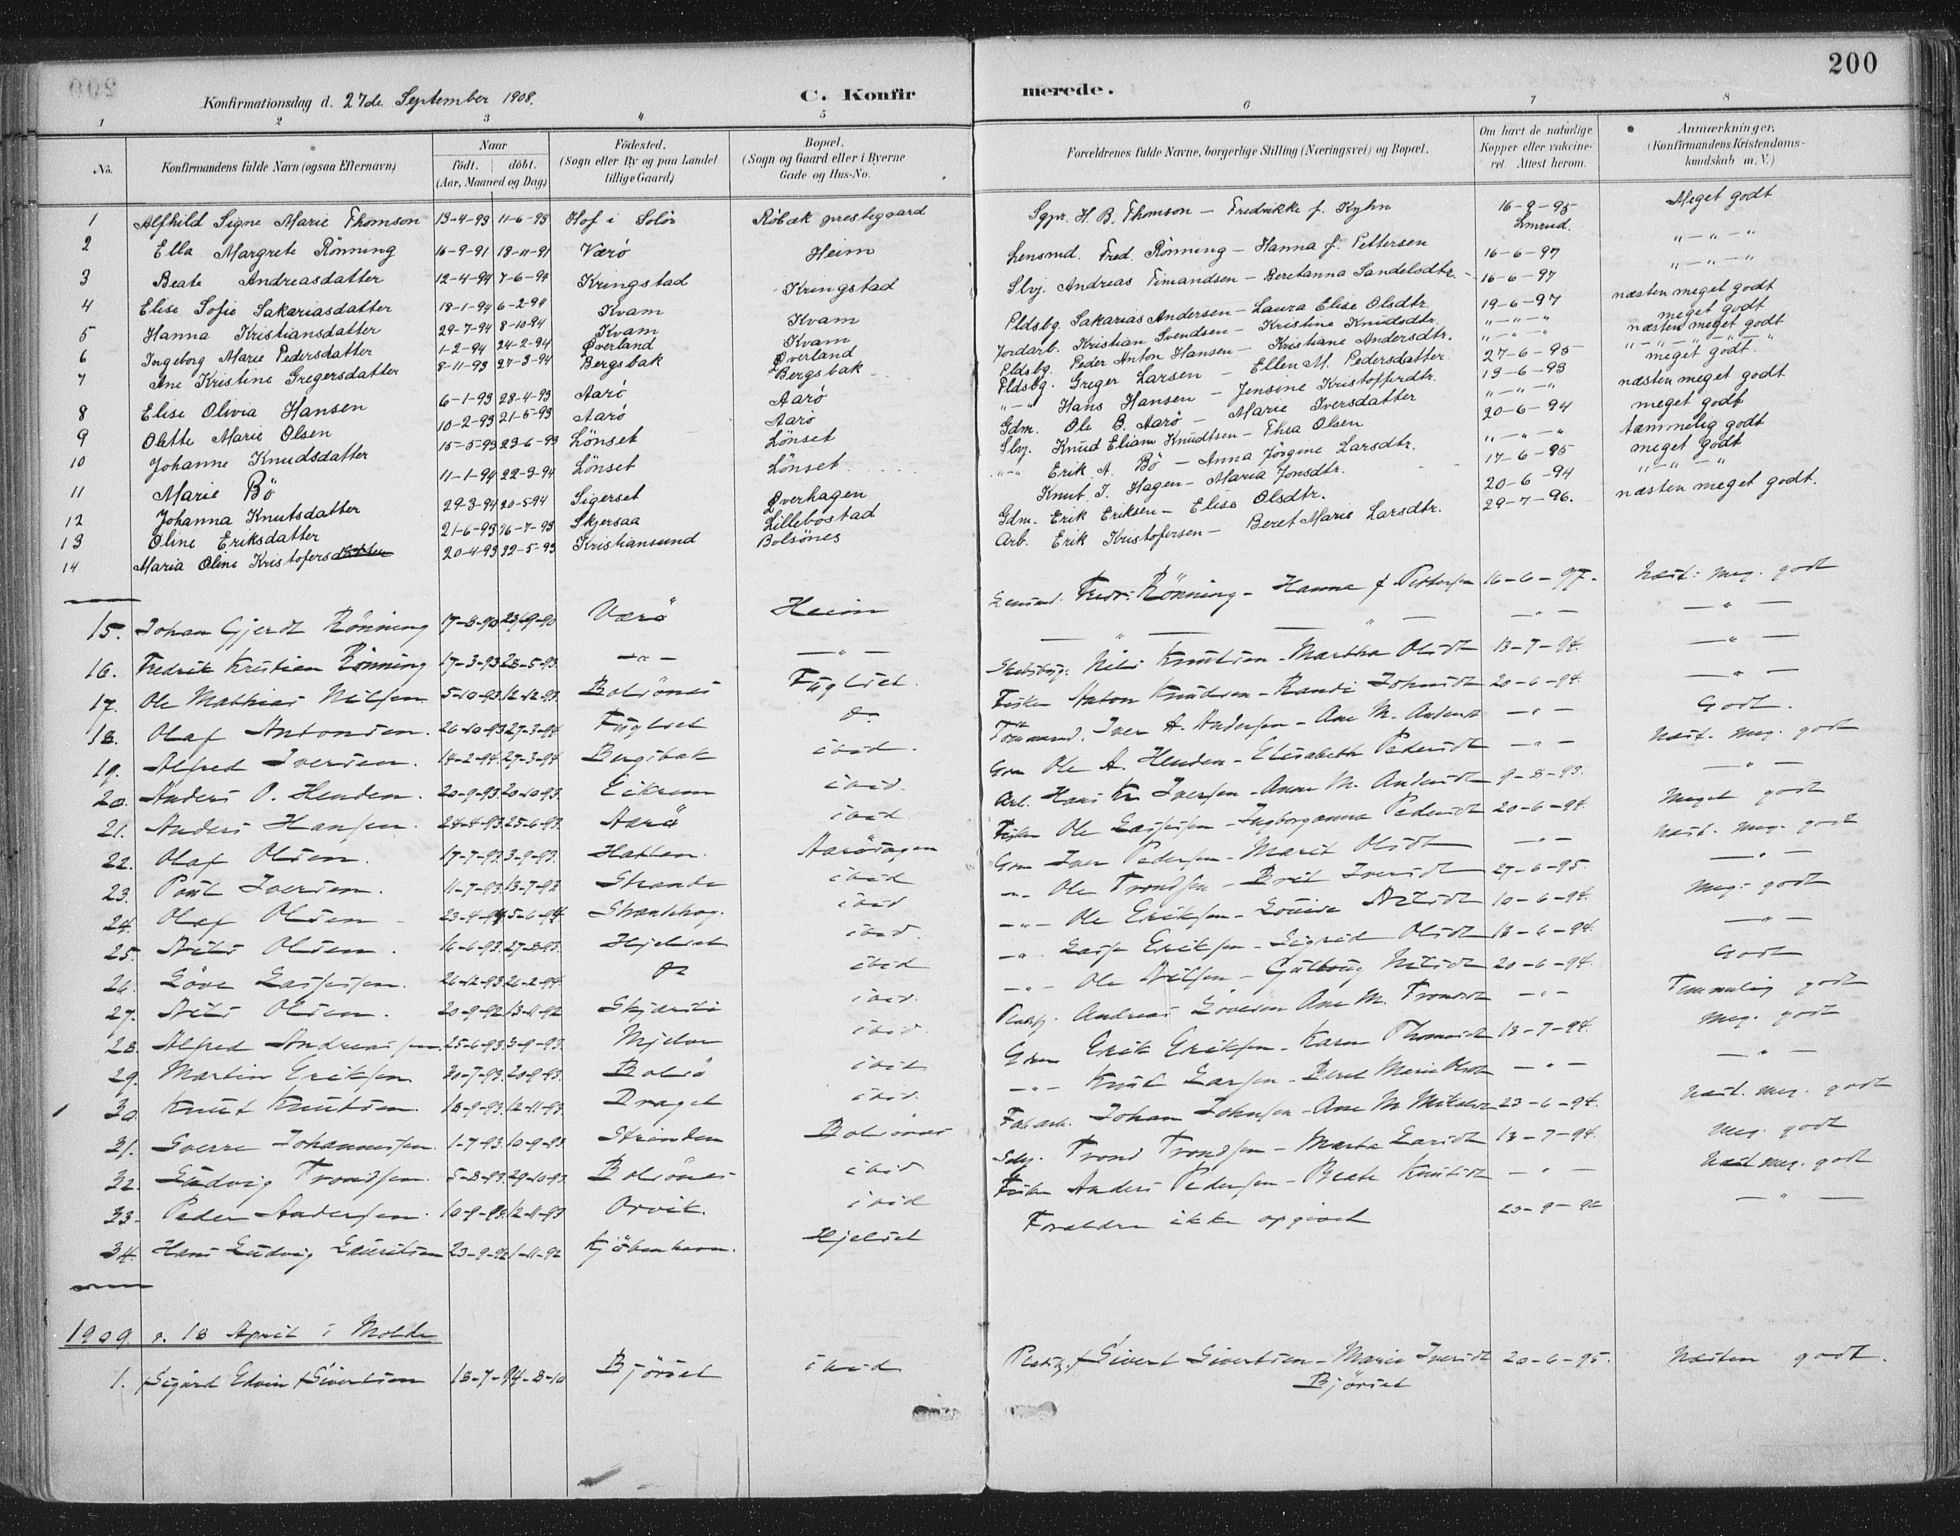 200
Konfirmationsdag d. 27de September 1908. C. Konfirmerede.
1 2 3 4 5 6 7 8
No. Konfirmandens fulde Navn (ogsaa Efternavn) Naar födt. döbt. (Aar, Maaned og Dag) Födested. (Sogn eller By og paa Landet tillige Gaard) Bopæl. (Sogn og Gaard eller i Byerne Gade og Hus-No. Forældrenes fulde Navne, borgerlige Stilling (Næringsvei) og Bopæl. Om havt de naturlige Kopper eller vakcineret. Attest herom. Anmærkninger. (Konfirmandens Kristendomskundskab m. V.)
1 Alfhild Signe Marie Thomson 13-4-93 11-6-93 Hof i Solör Röbæk prestegaard Sgpr. H. B. Thomson — Fredrikke f. Kyhn 16-9-95 Meget godt
2 Ella Margrete Rönning 16-9-91 18-11-91 Værö Heim Lensmd. Fred. Rönning — Hanna f. Pettersen 16-6-97 „ — „ — „
3 Beate Andreasdatter 12-4-94 7-6-94 Kringstad Kringstad Slvj. Andreas Timandsen — Beretanna Sandelsdtr. 16-6-97 „ — „ — „
4 Elise Sofie Sakariasdatter 18-1-94 6-2-94 Kvam Kvam Pldsbg. Sakarias Andersen — Laura Elise Olsdtr. 19-6-97 næsten meget godt
5 Hanna Kristiansdatter 29-7-94 8-10-94 Kvam Kvam Jordarb. Kristian Svendsen — Kristine Knudsdtr. „ — „ — „ meget godt
6 Ingeborg Marie Pedersdatter 1-2-94 24-2-94 Øverland Øverland Pldsbg. Peder Anton Hansen — Kristiane Andersdtr. „ — „ — „ næsten meget godt
7 Ane Kristine Gregersdatter 8-11-93 27-3-94 Bergsbak Bergsbak Pldsbg. Greger Larsen — Ellen M. Pedersdatter 27-6-95 „ — „ — „ — „
8 Elise Olivia Hansen 6-1-93 28-4-93 Aarö Aarö „ — „ Hans Hansen — Jensine Kristofferdtr. 13-6-93 meget godt.
9 Olette Marie Olsen 10-2-93 21-5-93 Aarö Aarö Gdm. Ole B. Aarö — Marie Iversdatter „ — „ — „ næsten meget godt
10 Johanne Knudsdatter 15-5-93 23-6-93 Lönset Lönset Slvj. Knud Eliam Knudtsen — Thea Olsen 20-6-94 meget godt
11 Marie Bö 11-1-94 22-3-94 Lönset Lönset „ — „ Erik A. Bö — Anna Jörgine Larsdtr. „ — „ — „ tæmmelig godt
12 Johanna Knutsdatter 29-3-94 20-5-94 Sigerset Øverhagen Knut J. Hagen — Maria Jonsdtr. 17-6-95 meget godt
13 Oline Eriksdatter 21-6-93 16-7-93 Skjersaa Lillebostad Gdm. Erik Eriksen — Elise Olsdtr. 20-6-94 „ — „ — „
14 Maria Oline Kristofersdatter 20-4-93 22-5-93 Kristiansund Bolsönes Arb. Erik Kristofersen — Beret Marie Larsdtr. 29-7-96. næsten meget godt.
15. Johan Gjerdt Rönning 17-8-90 Værö Heim Lensmd. Fredr. Rönning — Hanna f Pettersen 16-6-97. Næst: meg. godt
16. Fredrik Kristian Rönning 17-3-93 28-5-93. — „ — — „ — — „ — „ — — „ — — „ —
17. Ole Mathias Nilsen 5-10-93 12-12-93 Bolsönes Fuglset. Nils Knutsen — Martha Olsdt 13-7-94. — „ —
18. Olaf Antonsen. 26-10-93 27-3-94 Fuglset do Fisker Anton Knudsen — Randi Johnsdt 20-6-94. — „ —
19. Alfred Iversen. 18-2-94 27-3-94 Bergsbak ibid. Tömmermd. Iver A. Andersen — Ane M. Andersdt — „ — Godt.
20. Anders O. Henden. 20-9-93 20-10-93. Eikrem ibid. Grm Ole A. Henden — Elisabeth Pedersdt — „ — Næst. meg. godt
21. Anders Hansen. 24-4-93 25-6-93. Aarö ibid Arb. Hans Kr. Iversen — Anne M. Andersdt 9-8-93. — „ —
22. Olaf Olsen. 17-7-93 3-9-93. Hatten. Aarödagen Fisker Ole Lassesen — Ingborganna Pedersdt 20-6-94. Meget godt
23. Poul Iversen. 11-7-93 13-7-93 Strande ibid Grm Iver Pedersen — Marit Olsdt — „ — Næst. meg. godt
24. Olaf Olsen 23-4-94 5-6-94. ibid — „ — Ole Trondsen — Brit Iversdt 27-6-95 — „ —
25. Nils Olsen. 16-6-93 27-8-93. Hjelset ibid. — „ — Ole Eriksen — Lovise Nilsdt 10-6-94. Meg. godt
26. Löve Lassesen. 26-12-93 26-2-94. do ibid — „ — Lasse Eriksen — Sigrid Olsdt 18-6-94. — „ —
27. Nils Olsen. 20-9-92 13-11-92 ibid. — „ — Ole Nilsen — Gulborg Nilsdt 20-6-94. Godt
28. Alfred Andreassen. 25-6-93 3-9-93. Mjelve ibid. Pladsbg. Andreas Lövesen Ane M. Trondsdt — „ — Temmelig godt
29. Martin Eriksen 30-7-93. 20-9-93. Bolsö ibid Grm Erik Eriksen — Karen Thomasdt 13-7-94. Meg. godt
30. Knut Knutsen. 18-9-93. 12-11-93. Draget ibid. — „ — Knut Larsen — Beret Marie Olsdt — „ — — „ —
31. Sverre Johannesen. 1-7-93. 10-9-93. Strinden Bolsönes Fab.arb. Johan Johnsen — Ane M. 23-6-94. Næst. meg. godt
32. Ludvig Trondsen. 5-8-93. 29-10-93. Bolsönes ibid Trond Trondsen — Marta Larsdt 13-7-94. Meg. godt
33. Peder Andersen. 10-9-93. 12-11-93. Orvik. ibid Fisker Anders Pedersen — Beate Knutsdt — „ — Næst meg. godt
34. Hans Ludvig Lauritsen 23-9-92 1-11-92 Kjöbenhavn. Hjelset Forældre ikke opgivet 23-9-92 — „ —
1909. 18 April i Molde
1. Sigurd Edvin Sivertsen 18-7-94 Bjørset ibid Sivert Sivertsen — Marie Iversdt 20-6-95. Næsten godt.
Bjørset